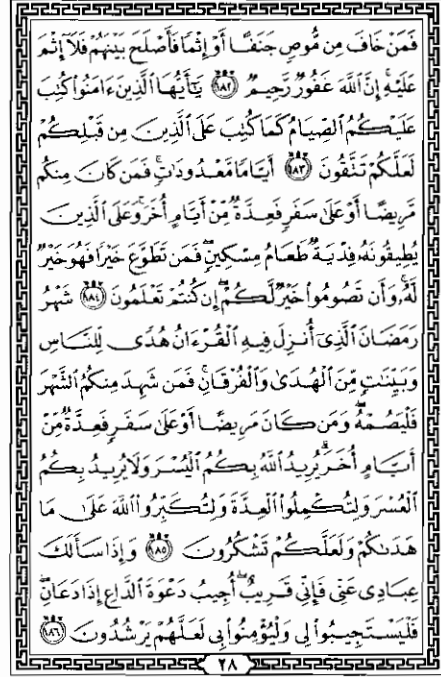 فَمَنْ خَافَ مِن مُّوصٍ جَنَفًا أَوْ إِثْمًا فَأَصْلَحَ بَيْنَهُمْ فَلَآ إِثْمَ
عَلَيْهِ ۚ إِنَّ ٱللَّهَ غَفُورٌ رَّحِيمٌ ١٨٢ يَـٰٓأَيُّهَا ٱلَّذِينَ ءَامَنُوا۟ كُتِبَ
عَلَيْكُمُ ٱلصِّيَامُ كَمَا كُتِبَ عَلَى ٱلَّذِينَ مِن قَبْلِكُمْ
لَعَلَّكُمْ تَتَّقُونَ ١٨٣ أَيَّامًا مَّعْدُودَٰتٍ ۚ فَمَن كَانَ مِنكُم
مَّرِيضًا أَوْ عَلَىٰ سَفَرٍ فَعِدَّةٌ مِّنْ أَيَّامٍ أُخَرَ ۚ وَعَلَى ٱلَّذِينَ
يُطِيقُونَهُۥ فِدْيَةٌ طَعَامُ مِسْكِينٍ ۖ فَمَن تَطَوَّعَ خَيْرًا فَهُوَ خَيْرٌ
لَّهُۥ ۚ وَأَن تَصُومُوا۟ خَيْرٌ لَّكُمْ ۖ إِن كُنتُمْ تَعْلَمُونَ ١٨٤ شَهْرُ
رَمَضَانَ ٱلَّذِىٓ أُنزِلَ فِيهِ ٱلْقُرْءَانُ هُدًى لِّلنَّاسِ
وَبَيِّنَـٰتٍ مِّنَ ٱلْهُدَىٰ وَٱلْفُرْقَانِ ۚ فَمَن شَهِدَ مِنكُمُ ٱلشَّهْرَ
فَلْيَصُمْهُ ۖ وَمَن كَانَ مَرِيضًا أَوْ عَلَىٰ سَفَرٍ فَعِدَّةٌ مِّنْ
أَيَّامٍ أُخَرَ ۗ يُرِيدُ ٱللَّهُ بِكُمُ ٱلْيُسْرَ وَلَا يُرِيدُ بِكُمُ
ٱلْعُسْرَ وَلِتُكْمِلُوا۟ ٱلْعِدَّةَ وَلِتُكَبِّرُوا۟ ٱللَّهَ عَلَىٰ مَا
هَدَىٰكُمْ وَلَعَلَّكُمْ تَشْكُرُونَ ١٨٥ وَإِذَا سَأَلَكَ
عِبَادِى عَنِّى فَإِنِّى قَرِيبٌ ۖ أُجِيبُ دَعْوَةَ ٱلدَّاعِ إِذَا دَعَانِ ۖ
فَلْيَسْتَجِيبُوا۟ لِى وَلْيُؤْمِنُوا۟ بِى لَعَلَّهُمْ يَرْشُدُونَ ١٨٦
٢٨